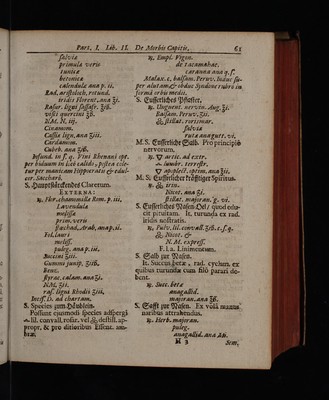 Pars, I. Lib. II. De Morbis Capitis, 61
salvia
primula veris
tunica
betonica
calendula ana p. ii.
Rad. aristoloch. rotund.
iridis florent. ana ʒi.
Rasur. ligni sassafr. ʒiß.
visci quercini ʒß.
N. M. N. iij.
Cinamom.
Cassia lign. ana ʒiii.
Cardamom.
Cubeb. ana ʒiß.
Infund. in s. q. Vini Rhenani spe.
per biduum in loco calido, postea cole-
tur per manicam Hippocratis & edul-
cer. Saccharo.
S. Hauptstärckendes Claretum.
EXTERNA:
℞. Flor. chamomilla Rom. p. iii.
Lavendula
melissa
prim. veris
stœchad. arab. ana p. ii.
Fol. lauri
meliss.
puleg. ana p. iii.
Succini ʒiii.
Gummi junip. ʒiiß.
Benz.
styrac. calam. ana ʒi.
N. M. ʒii.
ras. ligni Rhodii ʒiii.
Incis. D. ad chartam.
S. Species zum Häublein.
Possunt ejusmodi species adspergi
lil. convall. rosar. vel destill. ap-
propr. & pro ditioribus Essent. am-
bræ.
℞. Empl. Vigon.
de tacamahac.
caranna ana q. s.
Malax. c. balsam. Peruv. Induc su-
per alutam & obduc syndone rubro in
forma orbis medii.
S. Eusserliches Pflaster.
℞. Unguent. nervin. Aug. ʒi.
Balsam. Peruv. ʒii.
stillat. rorismar.
salvia
ruta ana gutt. vi.
M. S. Eusserliche Salb. Pro principio
nervorum.
artis. ad extr.
lumbr. terrestr.
apoplect. optim. ana ʒii.
M. S. Eusserlicher kräfftiger Spiritus.
Nicot. ana ʒi.
stillat. majoran. g. vi.
S. Eusserliches Nasen-Oel / quod odu-
cit pituitam. It. turunda ex rad.
iridis nostratis.
℞. Pulv. lil. convall. ʒiß. c. s. q.
Nicot. &
N. M. express.
F. l. a. Linimentum.
S. Salb zur Nasen.
It. Succus betæ, rad. cyclam. ex
quibus turundæ cum filo parari de-
bent.
℞. Succ. beta
anagallid.
majoran. ana ʒß.
S. Safft zur Nasen. Ex volâ manus
naribus attrahendus.
℞. Herb. majoran.
puleg.
anagallid. ana Mi.
H 3 Sem.